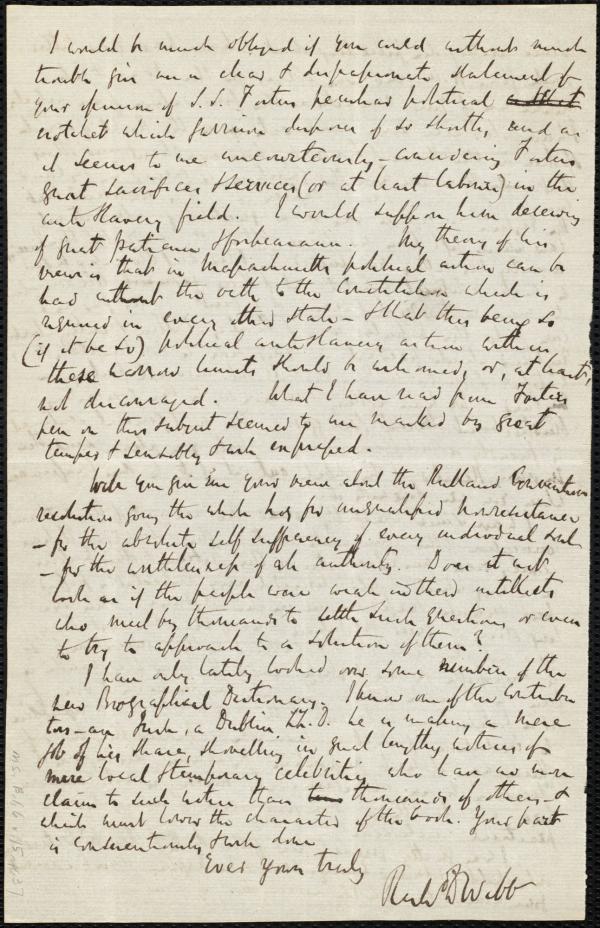 I would be much obliged if you could without much
trouble give me a clear & dispassionate statement of
your opinion of S. S. Fosters peculiar political
crotchet which Garrison disposes of so shortly, and as
it seems to me uncourteously - considering Fosters
great sacrifices & services (or at least labours) in the
anti Slavery field. I would suppose him deserving
of great patience & forbearance. My theory of his
views is that in Massachusetts political action can be
had without the oath to the Constitution which is
required in every other State - & that this being so
(if it be so) political antislavery action within
these narrow limits should be welcomed, or, at least,
not discouraged. What I have read from Fosters
pen on this subject seemed to me marked by great
temper & sensibly & well expressed.
Will you give me your views about the Rutland Convention
resolutions going the whole hog for unqualified nonresistance
- for the absolute self sufficiency of every individual soul
- for the worthlessness of all authority. Does it not
look as if the people were weak in their intellects
who meet by thousands to settle such questions or even
to try to approach to a solution of them?
I have only lately looked over some numbers of the
new Biographical Dictionary. I know one of the contribu
tors - a Dublin LL.D. he is making a mere
job of his share, shovelling in great lengthy notices of
mere local & temporary celebrities who have no more
claim to such notice than thousands of others - &
which must lower the character of the book. Your part
is conscientiously & well done
Ever yours truly
Richd D Webb